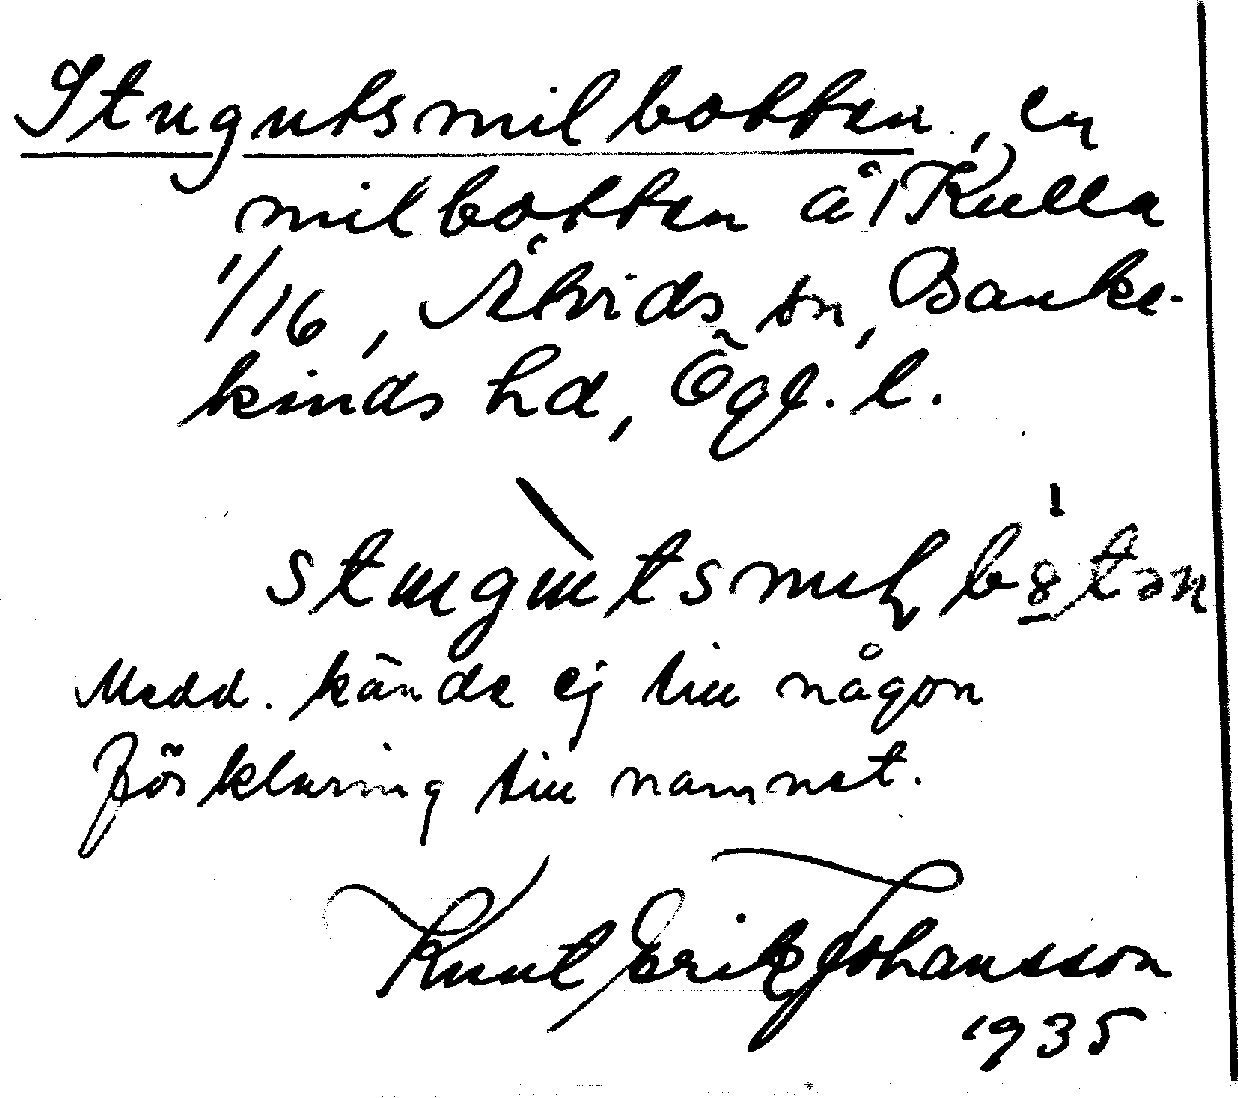 Stugutsmilbotten, en
milbotten å Kulla
1/16, Åtvids sn, Banke-
kinds hd, Ögl. l.
Medd. kände ej till någon
förklaring till namnet.
Knut Erik Johansson
1935